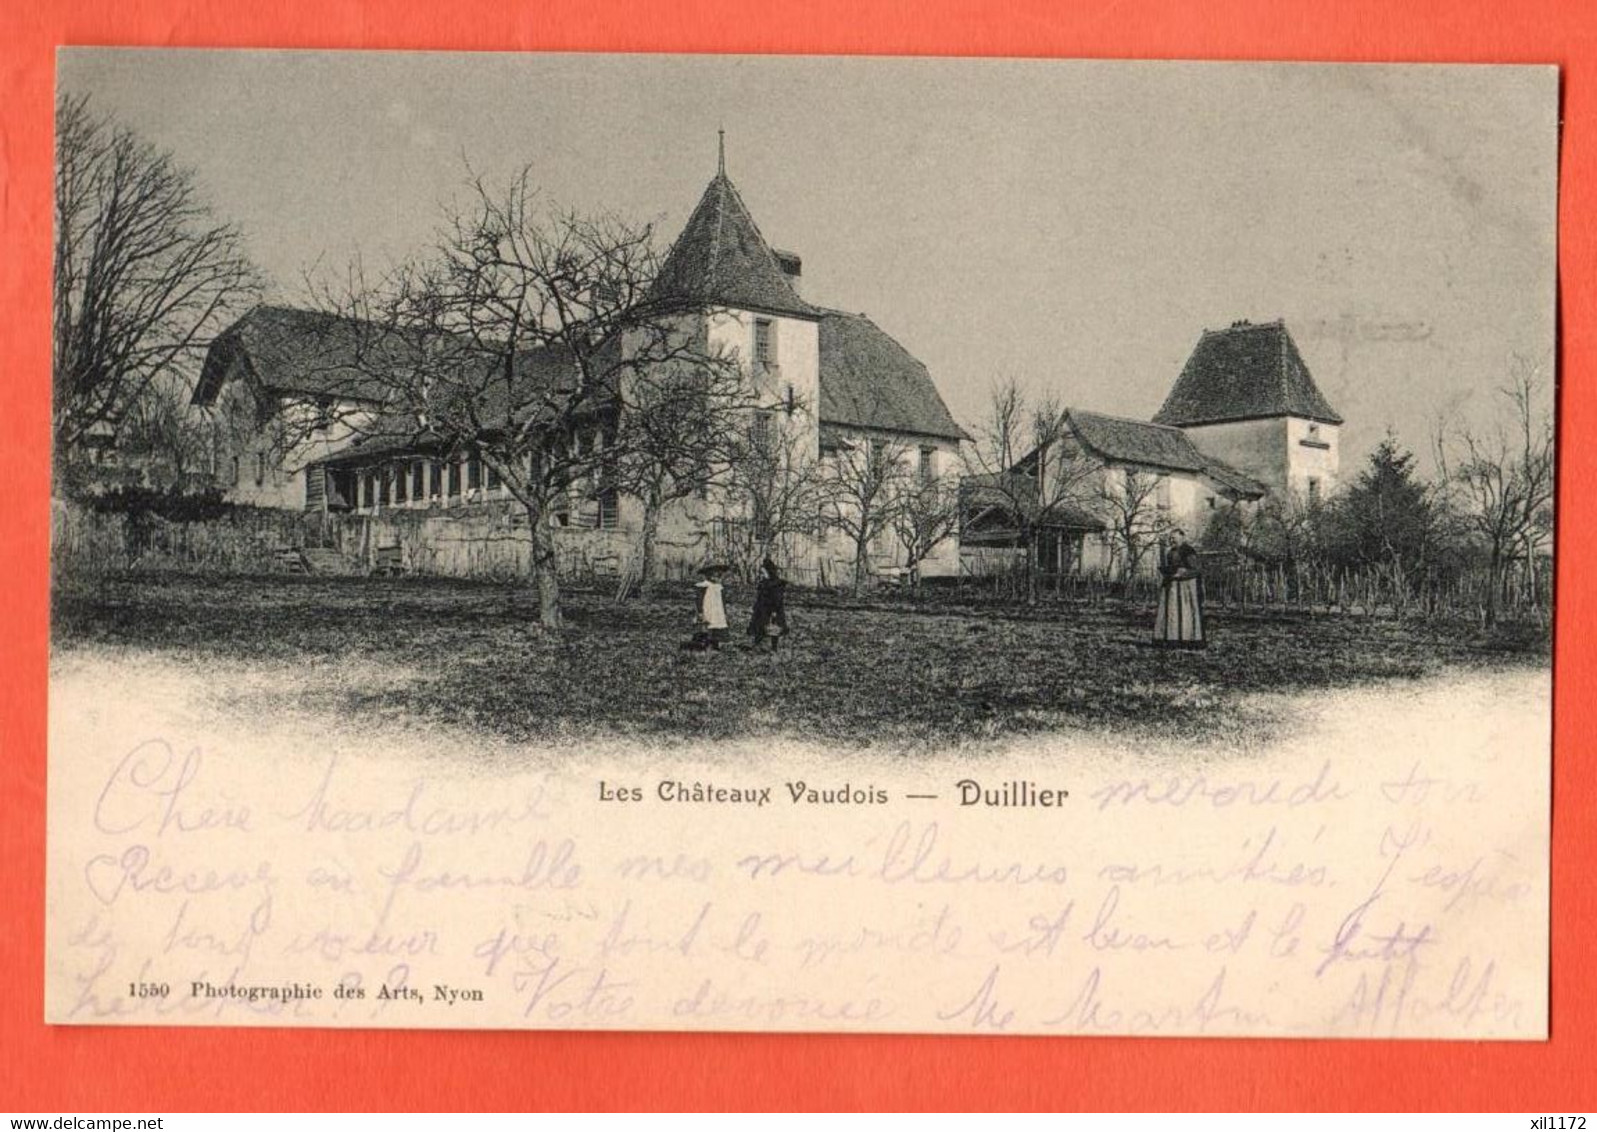 Les Châteaux Vaudois — Duillier
mercredi soir
Chère Madame
Recevez en famille mes meilleures amitiés. J'espère
de tout coeur que tout le monde est bien et le petit
héritier ?? Votre dévouée M Martin Affolter
1550 Photographie des Arts, Nyon
www.delcampe.net
xil1172